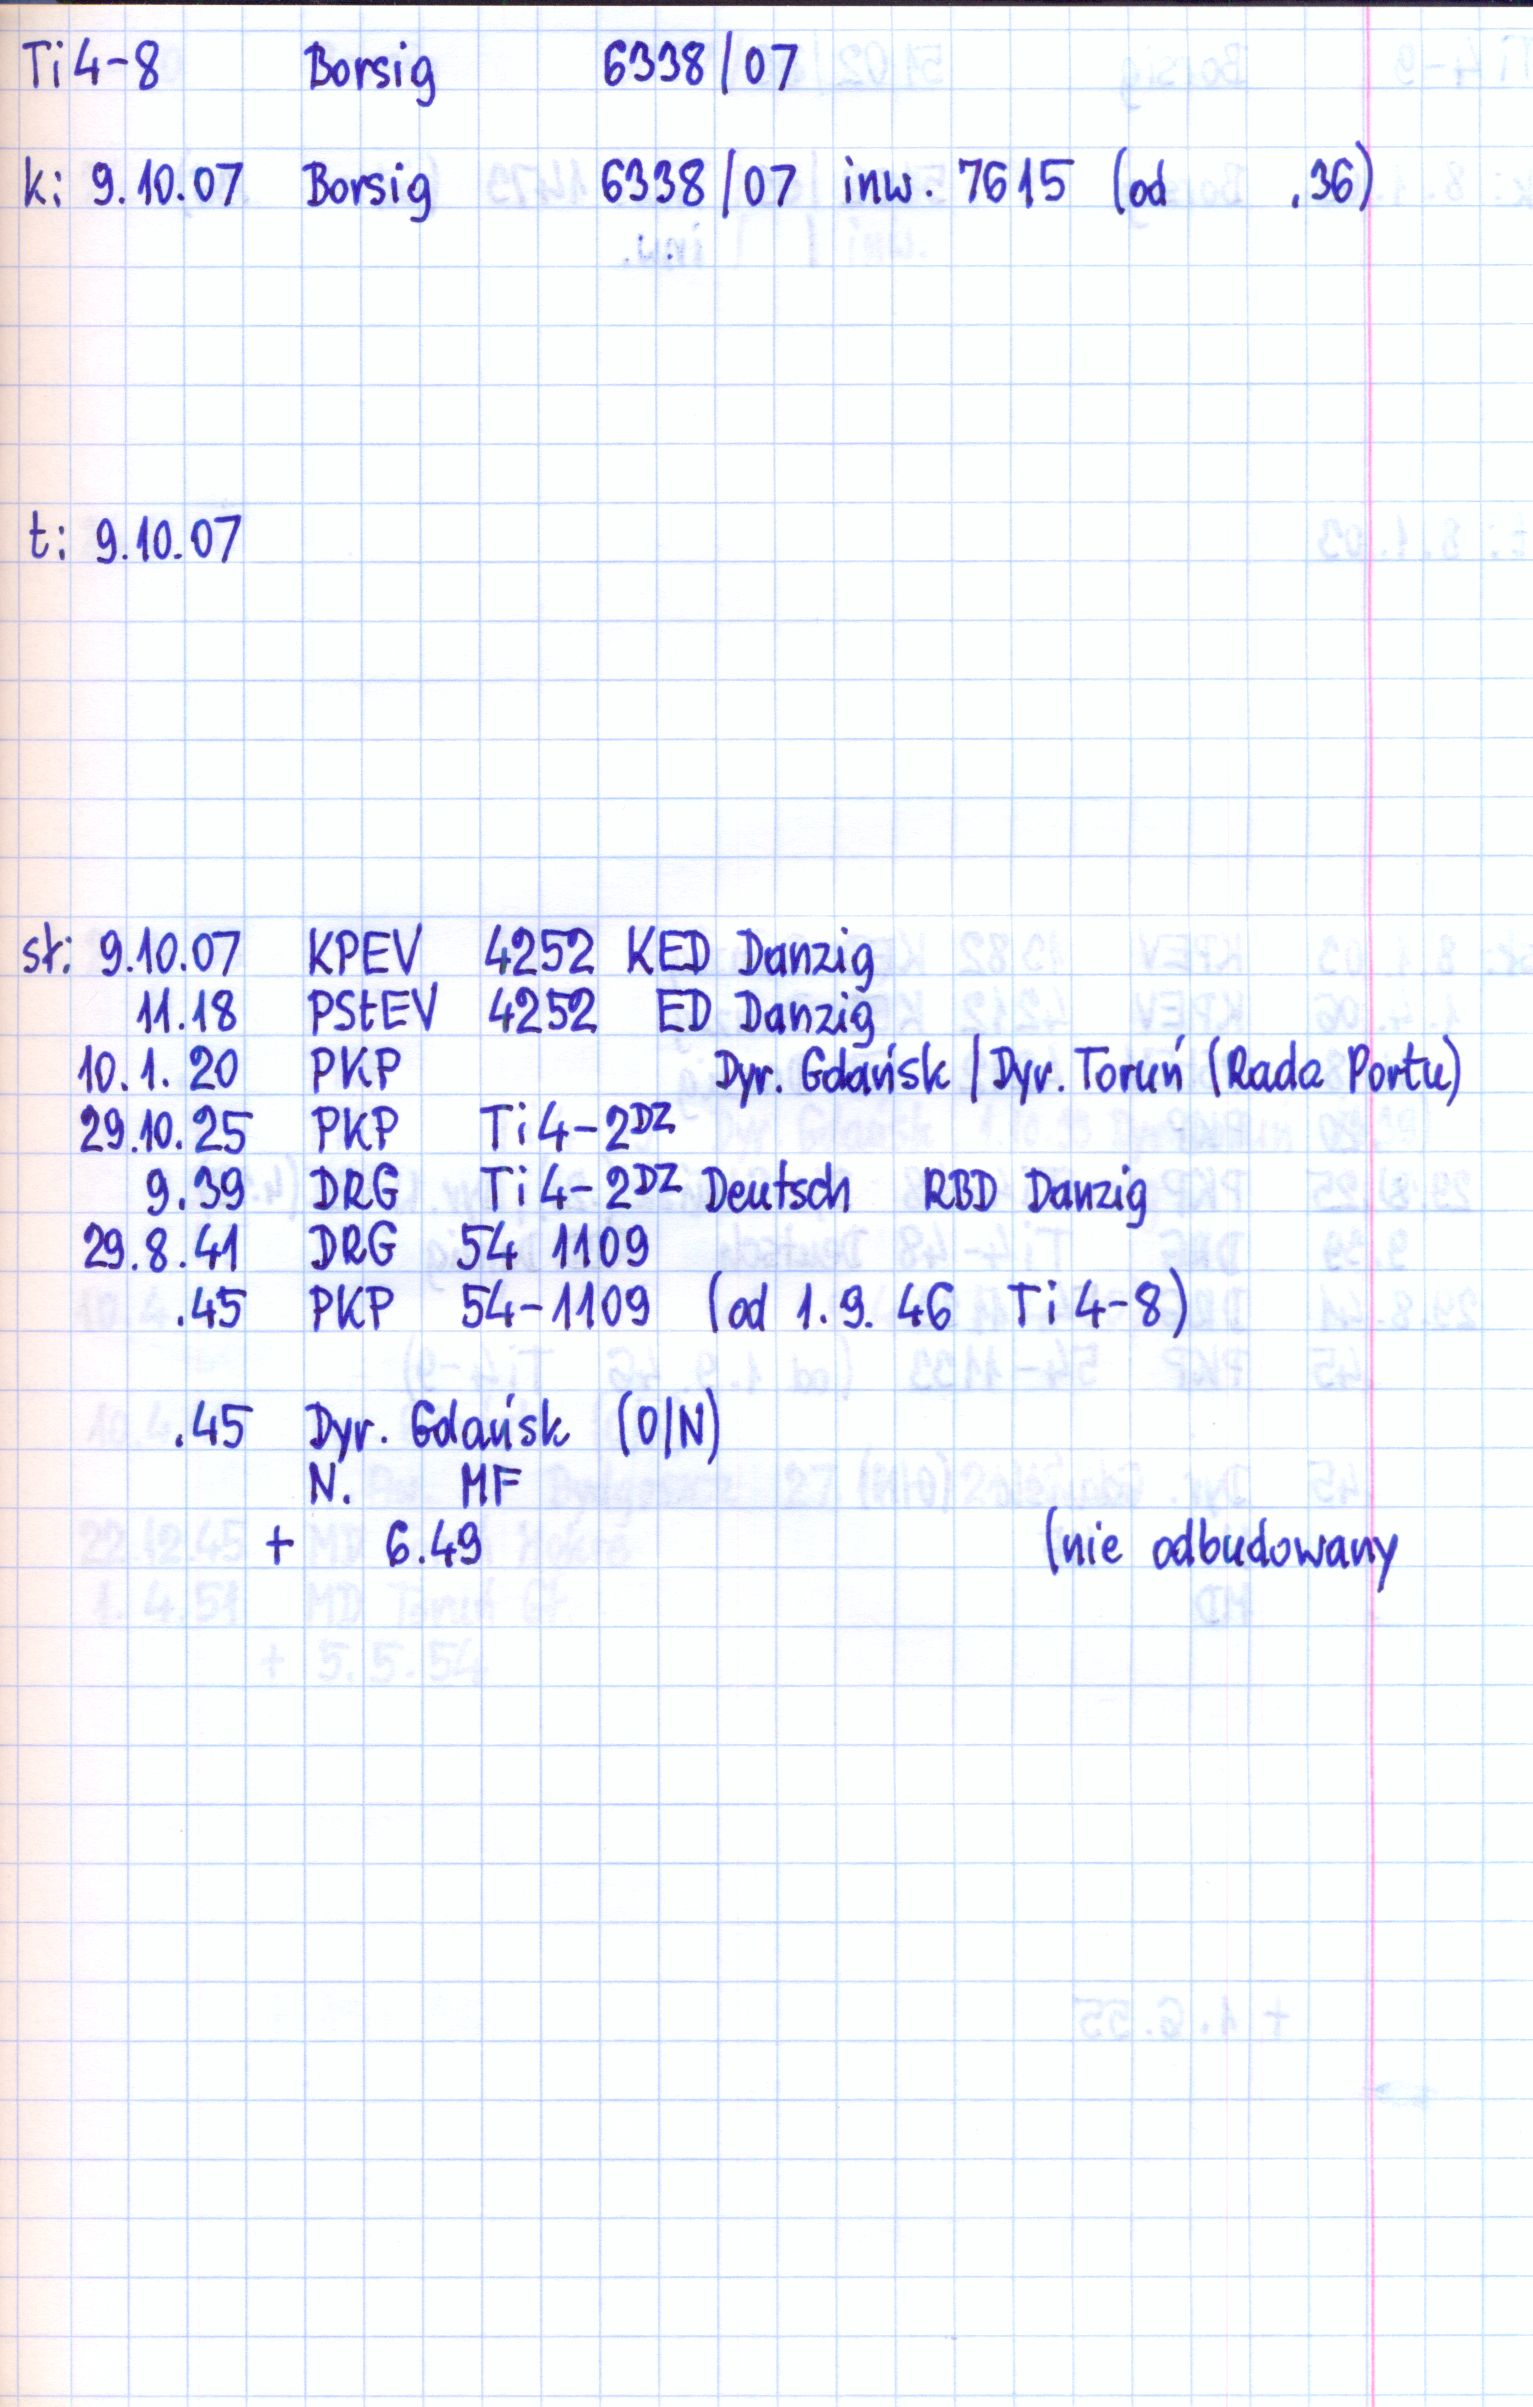 Ti4-8 Borsig 6338/07
k: 9.10.07 Borsig 6338/07 inw. 7615 (od .36)
t: 9.10.07
st: 9.10.07 KPEV 4252 KED Danzig
11.18 PStEV 4252 ED Danzig
10.1.20 PKP Dyr. Gdańsk/Dyr. Toruń (Rada Portu)
29.10.25 PKP Ti4-2DZ
9.39 DRG Ti4-2DZ Deutsch RBD Danzig
29.8.41 DRG 54 1109
.45 PKP 54-1109 (od 1.9.46 Ti4-8)
.45 Dyr. Gdańsk (O/N)
N. MF
+ 6.49 (nie odbudowany